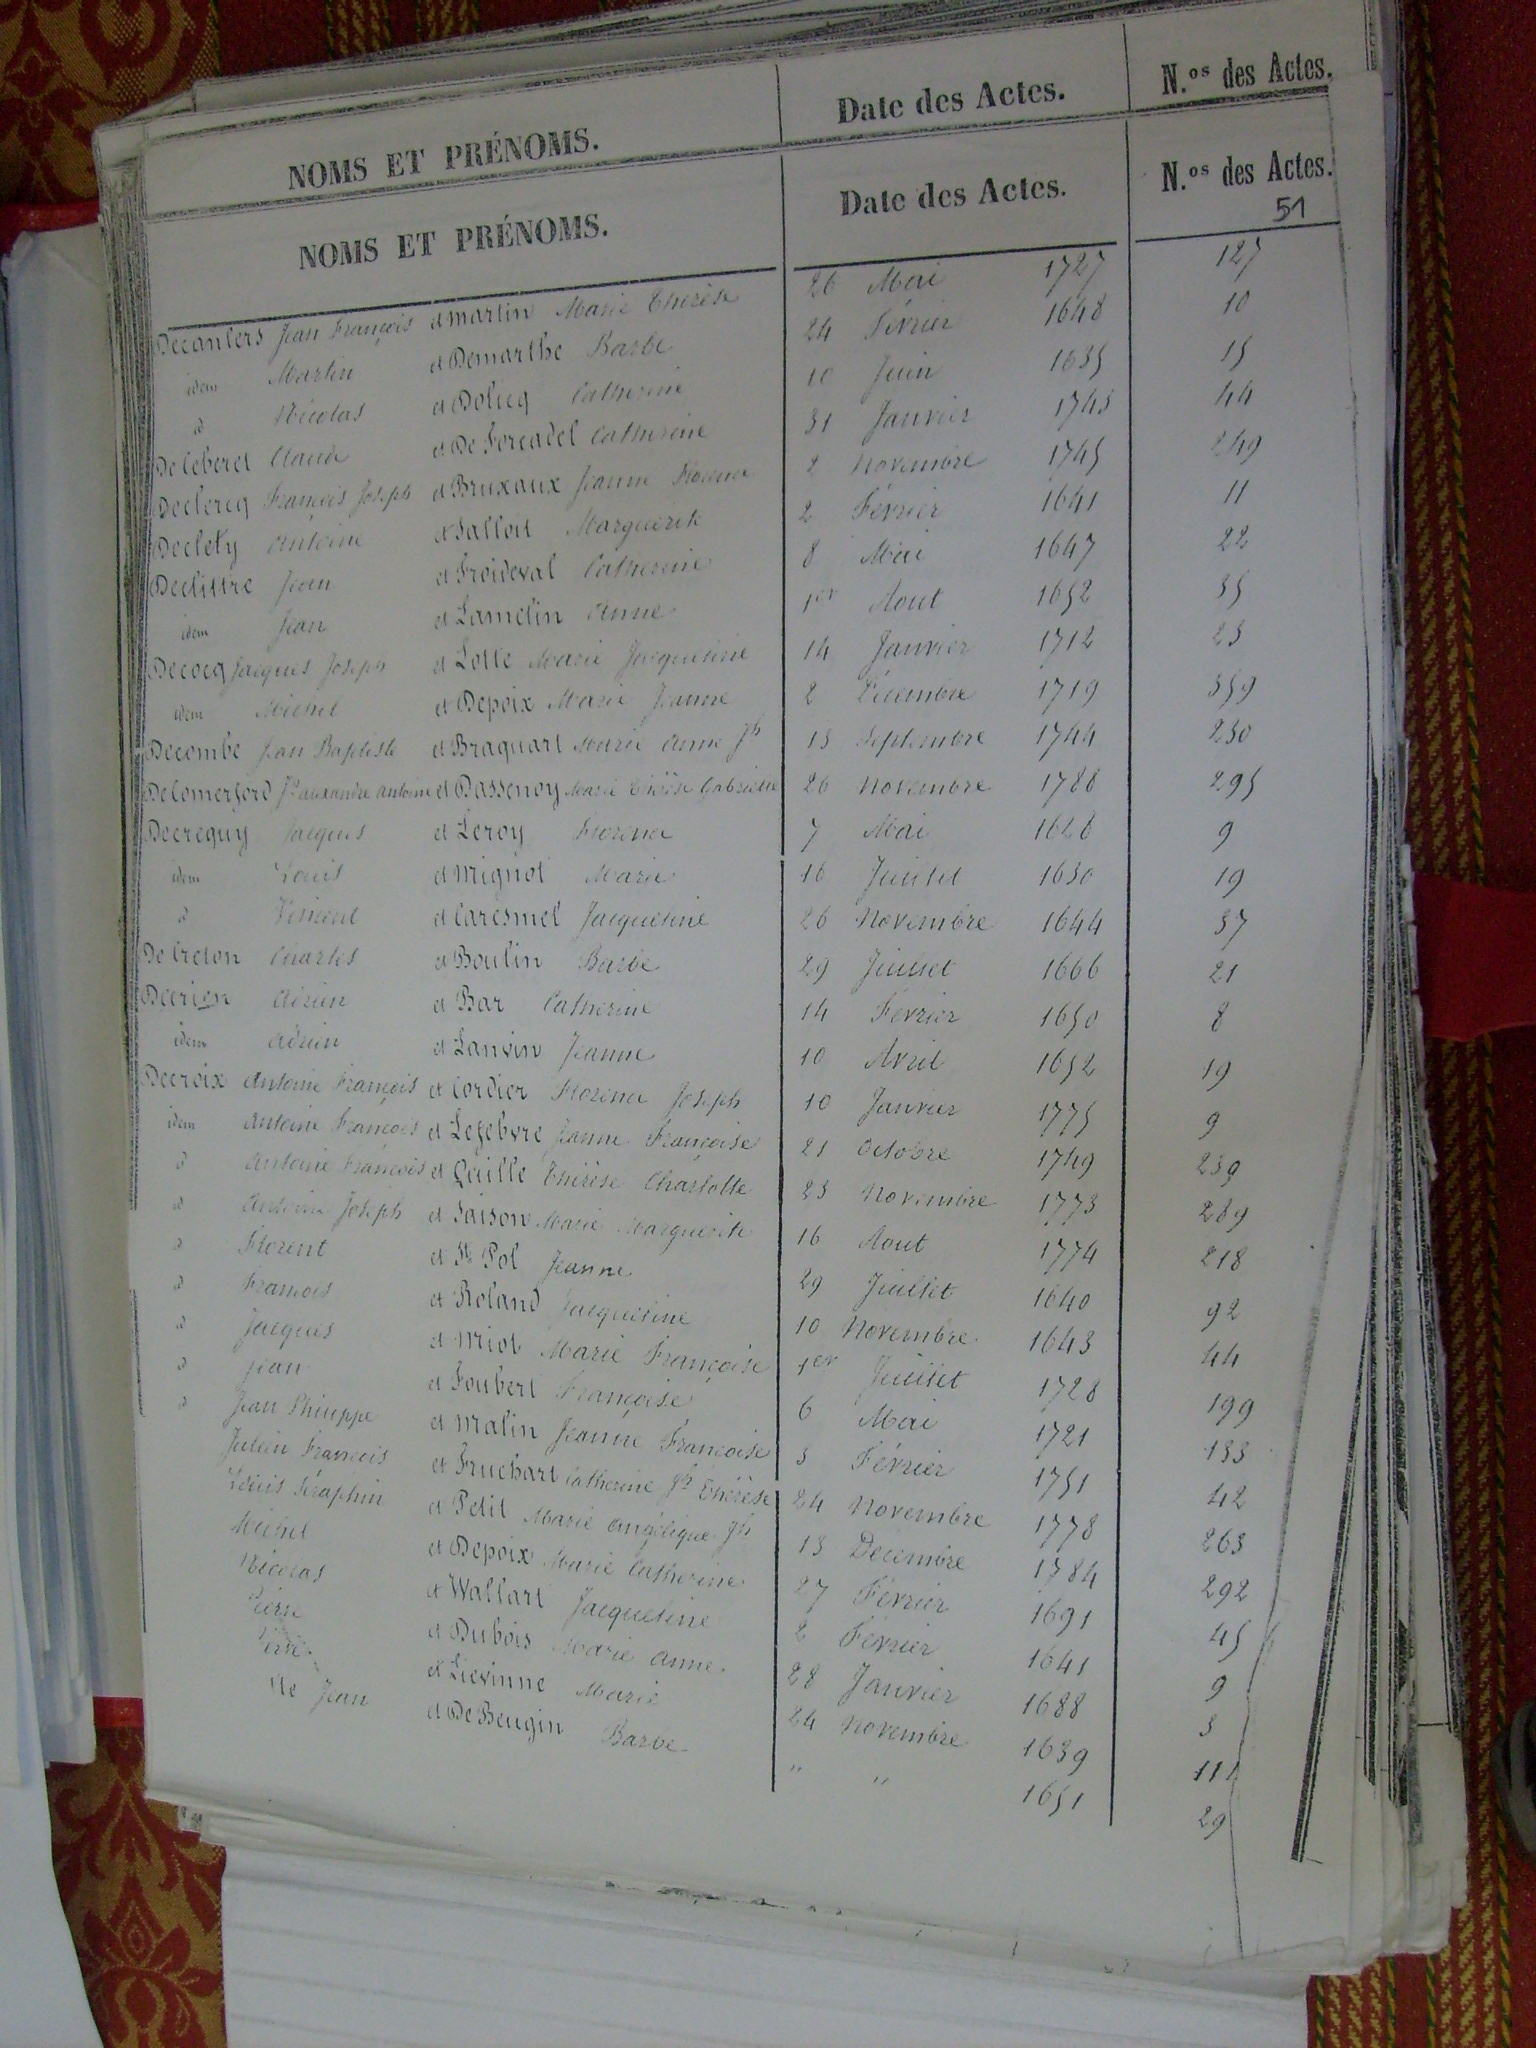 NOMS ET PRÉNOMS. Date des Actes. N.os des Actes.
NOMS ET PRÉNOMS. Date des Actes. N.os des Actes.
51
Decanlers Jean François et Martin Marie Thérèse 26 Mai 1727 127
idem Martin et Demarthe Barbe 24 Février 1648 10
d Nicolas et Dolicq Catherine 10 Juin 1635 15
De Ceberet Claude et De Forcadel Catherine 31 Janvier 1743 44
Declercq François Joseph et Bruxaux Jeanne Florence 2 Novembre 1745 249
Declety Antoine et Salloit Marguerite 2 Février 1641 11
Declittre Jean et Froideval Catherine 8 Mai 1647 22
idem Jean et Lamelin Anne 1er Aout 1652 35
Decocq Jacques Joseph et Lotte Marie Jacqueline 14 Janvier 1712 23
idem Michel et Depoix Marie Jeanne 2 Décembre 1719 359
Decombe Jean Baptiste et Braquart Marie Anne Jh 13 Septembre 1744 230
De Comerford Jh alexandre antoine et Dassenoy Marie Thérèse Gabrielle 26 Novembre 1788 295
Decrequy Jacques et Leroy Florence 7 Mai 1626 9
idem Louis et Mignot Marie 16 Juillet 1630 19
d Vincent et Caresmel Jacqueline 26 Novembre 1644 37
De Creton Charles et Boulin Barbe 29 Juillet 1666 21
Decrien Adrien et Bar Catherine 14 Février 1650 8
idem Adrien et Lanvin Jeanne 10 Avril 1652 19
Decroix Antoine François et Cordier Florence Joseph 10 Janvier 1775 9
idem Antoine François et Lefebvre Jeanne Françoise 21 Octobre 1749 239
d Antoine François et Quille Thérèse Charlotte 23 Novembre 1773 289
d Antoine Joseph et Saison Marie Marguerite 16 Aout 1774 218
d Florent et St Pol Jeanne 29 Juillet 1640 92
d François et Roland Jacqueline 10 Novembre 1643 44
d Jacques et Miot Marie Françoise 1er Juillet 1728 199
d Jean et Foubert Françoise 6 Mai 1721 133
d Jean Philippe et Malin Jeanne Françoise 3 Février 1751 42
Julien François et Fruchart Catherine Jh Thérèse 24 Novembre 1778 263
Louis Séraphin et Petit Marie Angélique Jh 13 Décembre 1784 292
Michel et Depoix Marie Catherine 27 Février 1691 45
Nicolas et Wallart Jacqueline 2 Février 1641 9
Pierre et Dubois Marie Anne 28 Janvier 1688 3
Pierre et Lievinne Marie 24 Novembre 1639 111
Jean et De Beugin Barbe " " 1651 29